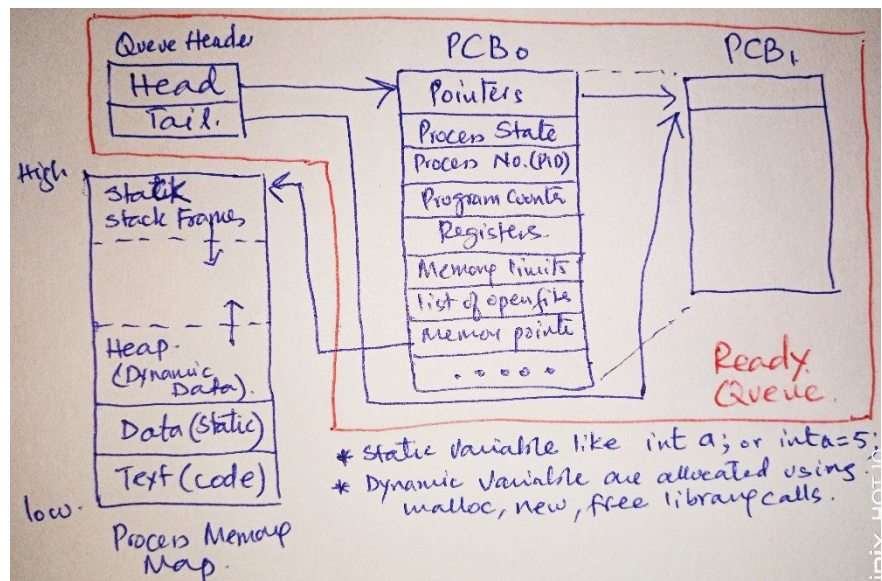 Queue Header
Head
Tail.
PCB0
Pointers
Process State
Process No.(PID)
Program Counter
Registers
Memory limits
list of openfiles
Memory pointe
.....
PCB1
Ready
Queue.
High
Statik
Stack Frames
Heap.
(Dynamic
Data).
Data (Static)
Text (code)
low.
Process Memory
Map.
* Static Variable like int a; or int a=5;
* Dynamic Variable are allocated using
malloc, new, free library calls.